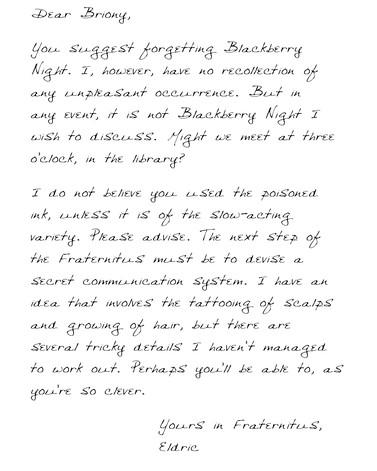 Dear Briony,
You suggest forgetting Blackberry
Night. I, however, have no recollection of
any unpleasant occurrence. But in
any event, it is not Blackberry Night I
wish to discuss. Might we meet at three
o'clock, in the library?
I do not believe you used the poisoned
ink, unless it is of the slow-acting
variety. Please advise. The next step of
the Fraternitus must be to devise a
secret communication system. I have an
idea that involves the tattooing of scalps
and growing of hair, but there are
several tricky details I haven't managed
to work out. Perhaps you'll be able to, as
you're so clever.
Yours in Fraternitus,
Eldric